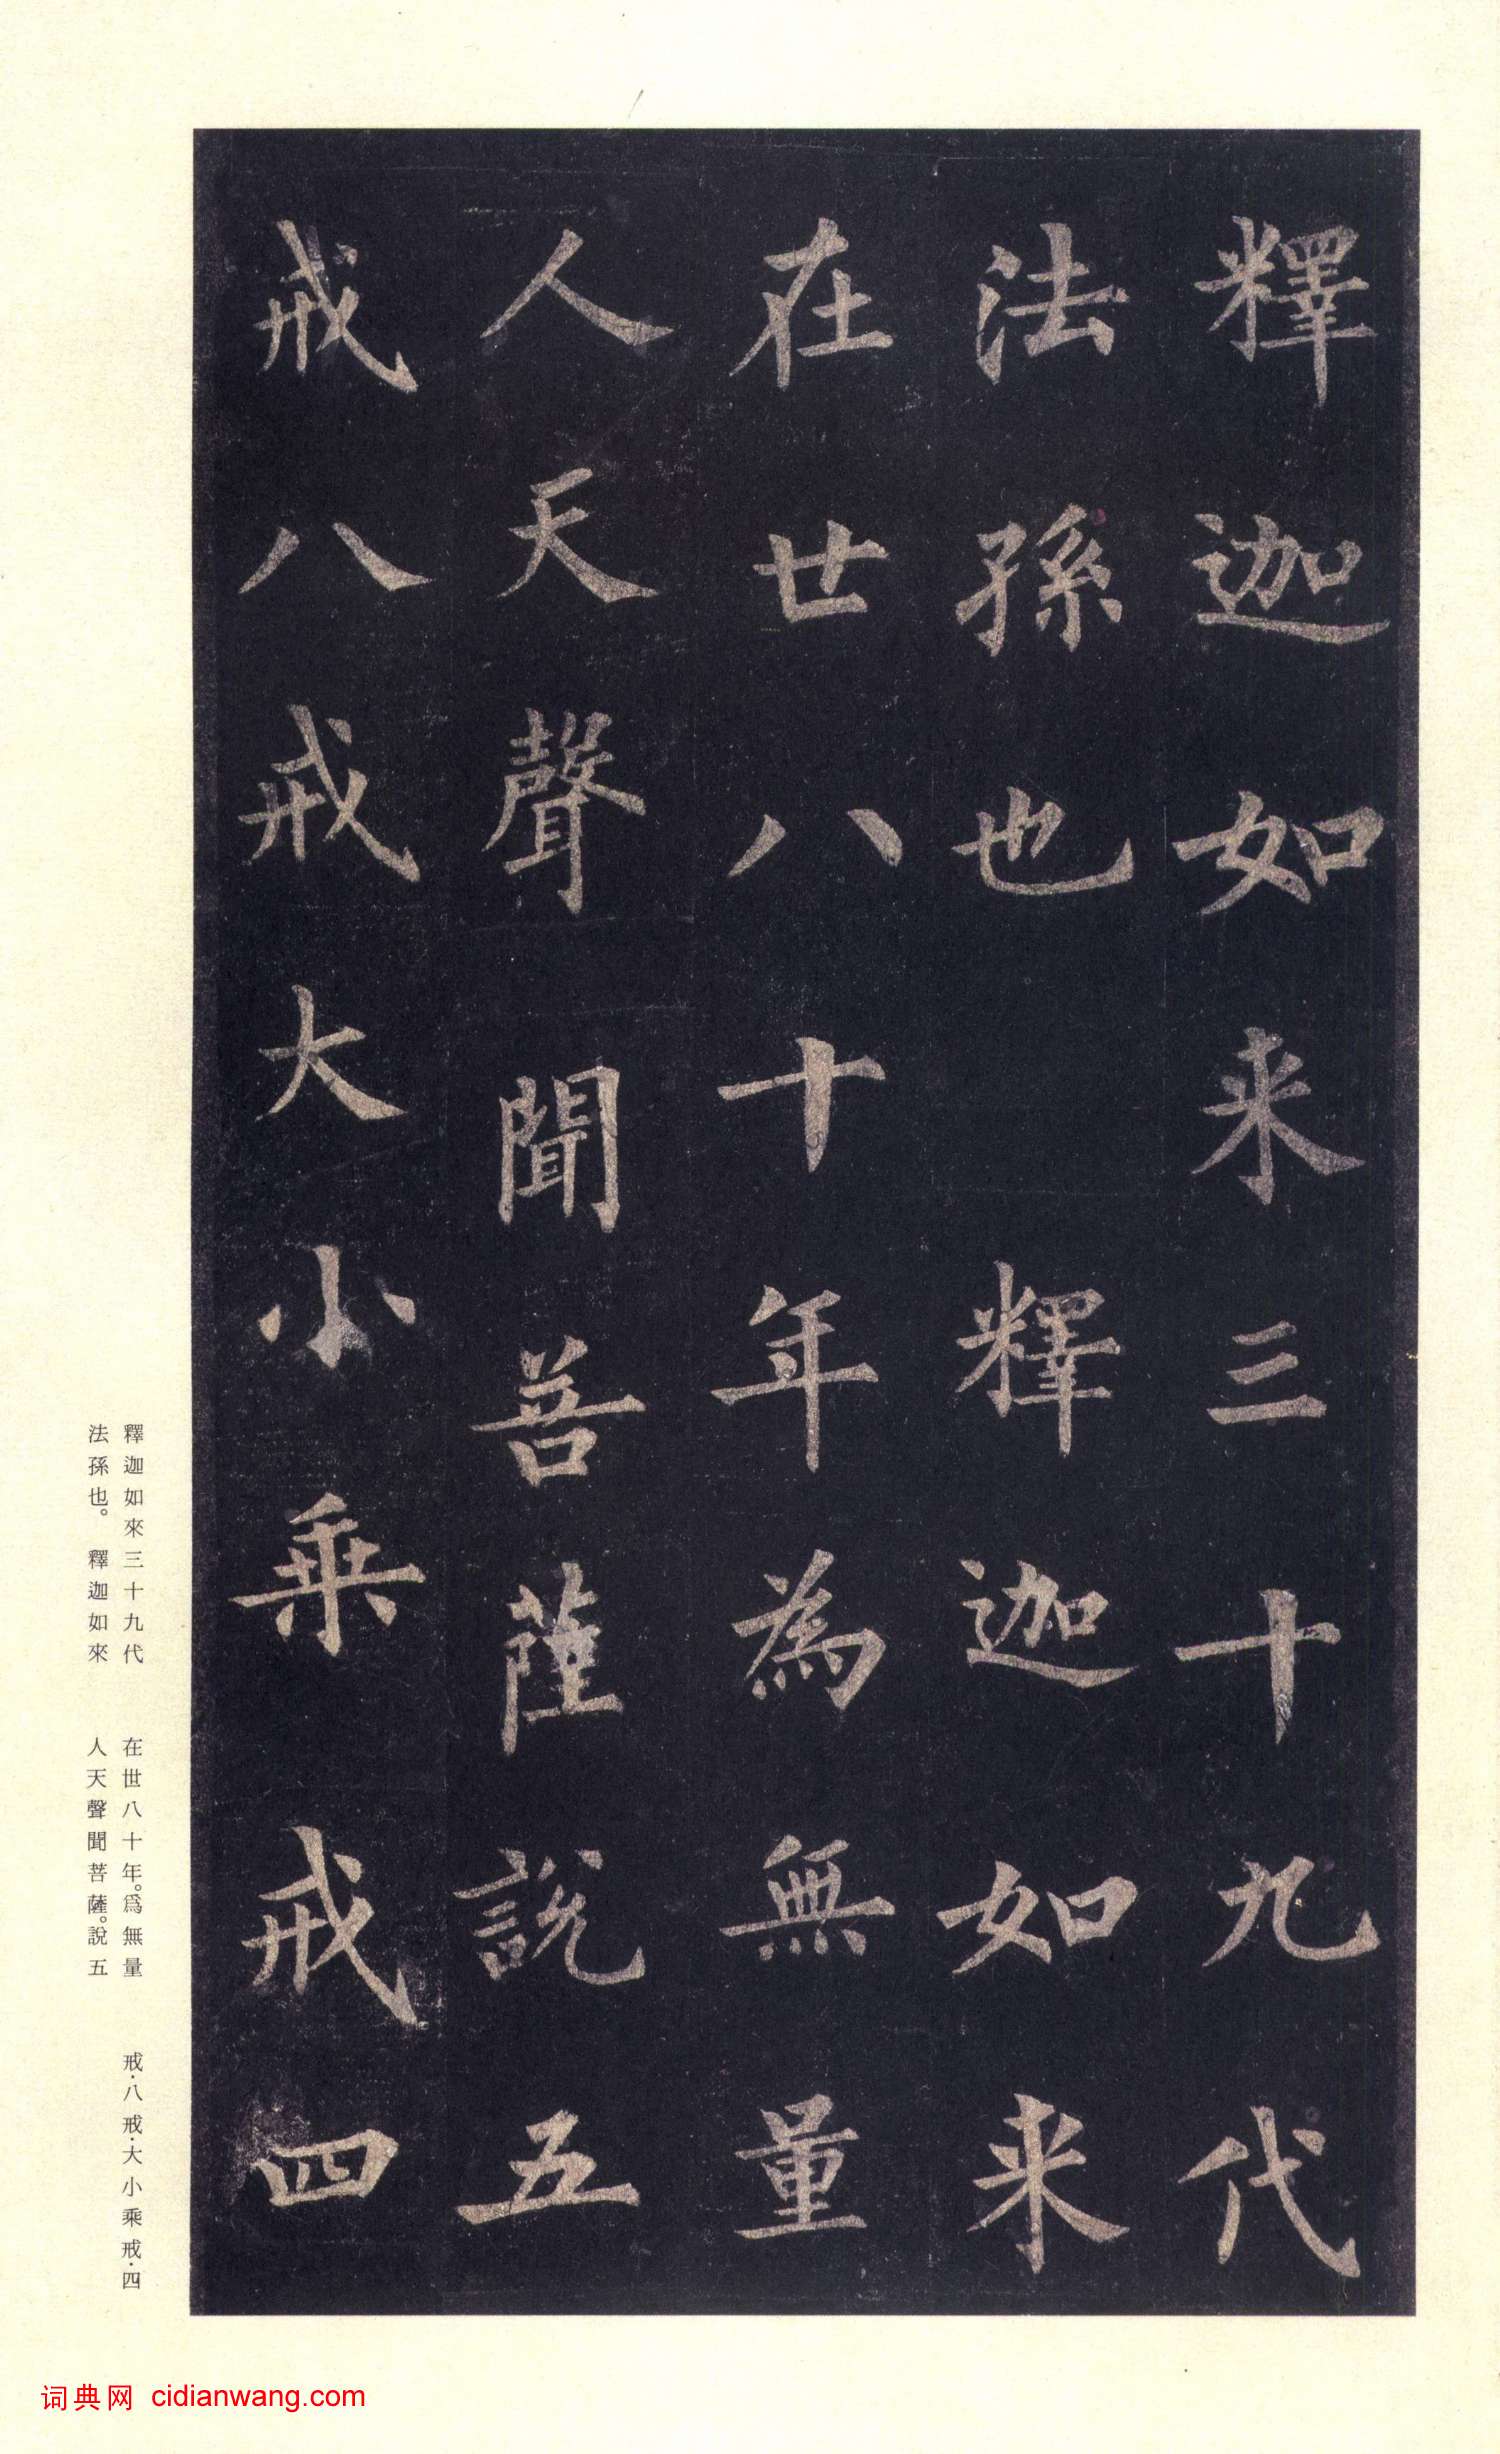 釋迦如来三十九代
法孫也 釋迦如来
在世八十年為無量
人天聲聞菩薩說五
戒八戒大小乘戒四
釋迦如來三十九代
法孫也。 釋迦如來
在世八十年。爲無量
人天聲聞菩薩。說五
戒·八戒·大小乘戒·四
词典网 cidianwang.com